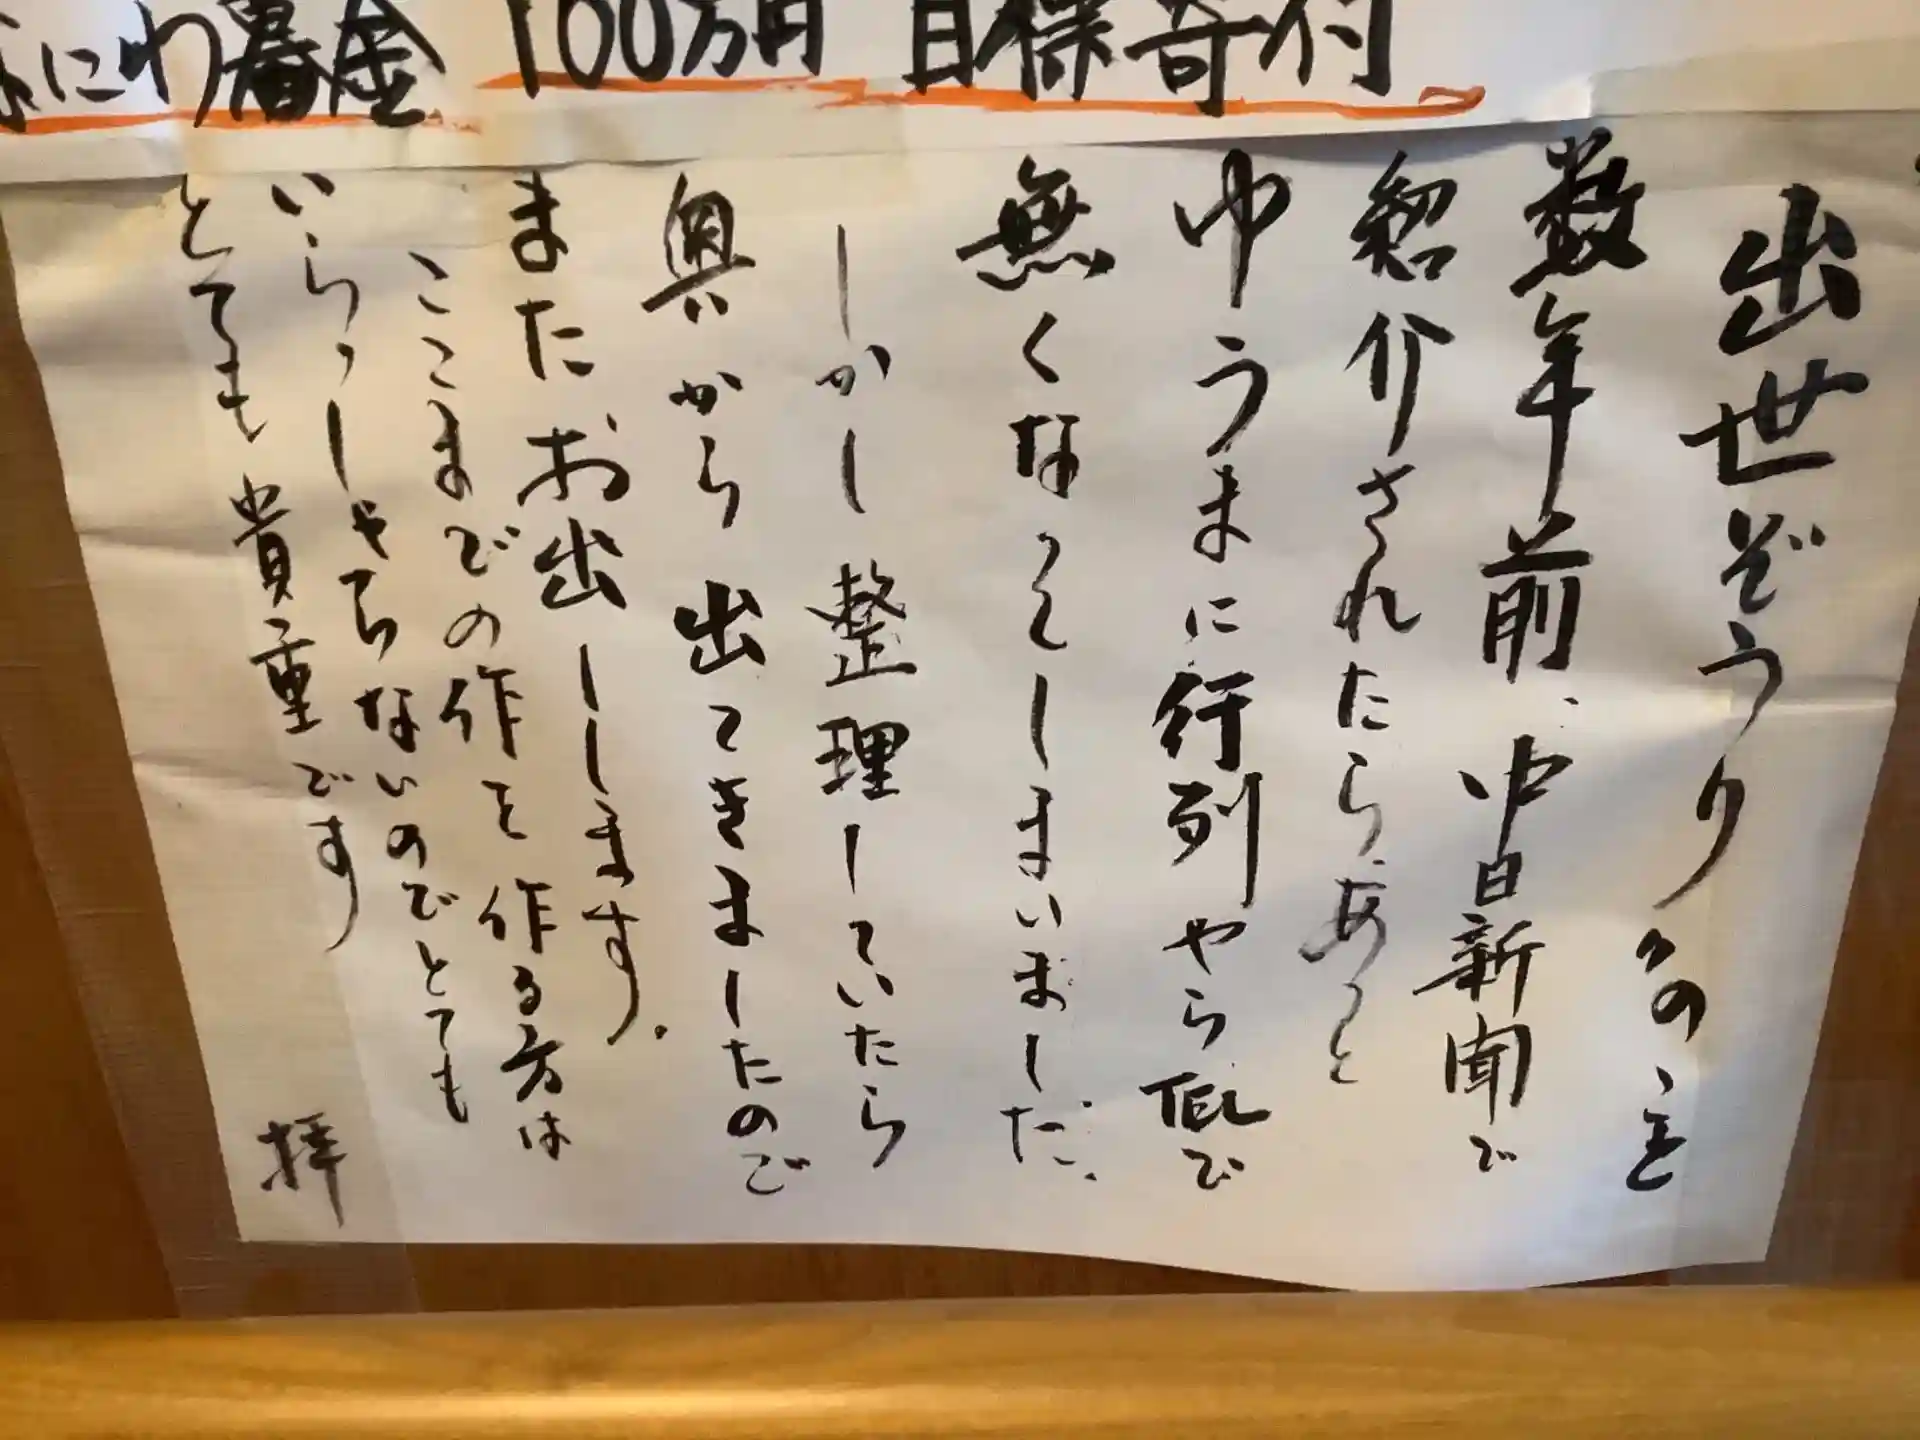 にわ募金 100万円 目標寄付
出世ぞうりの
数年前、中日新聞で
紹介されたら、あっと
ゆうまに行列やらTELで
無くなってしまいました、
しかし整理していたら
奥から出てきましたので
またお出しします。
ここまでの作を作る方は
いらっしゃらないのでとても
とても貴重です
拝